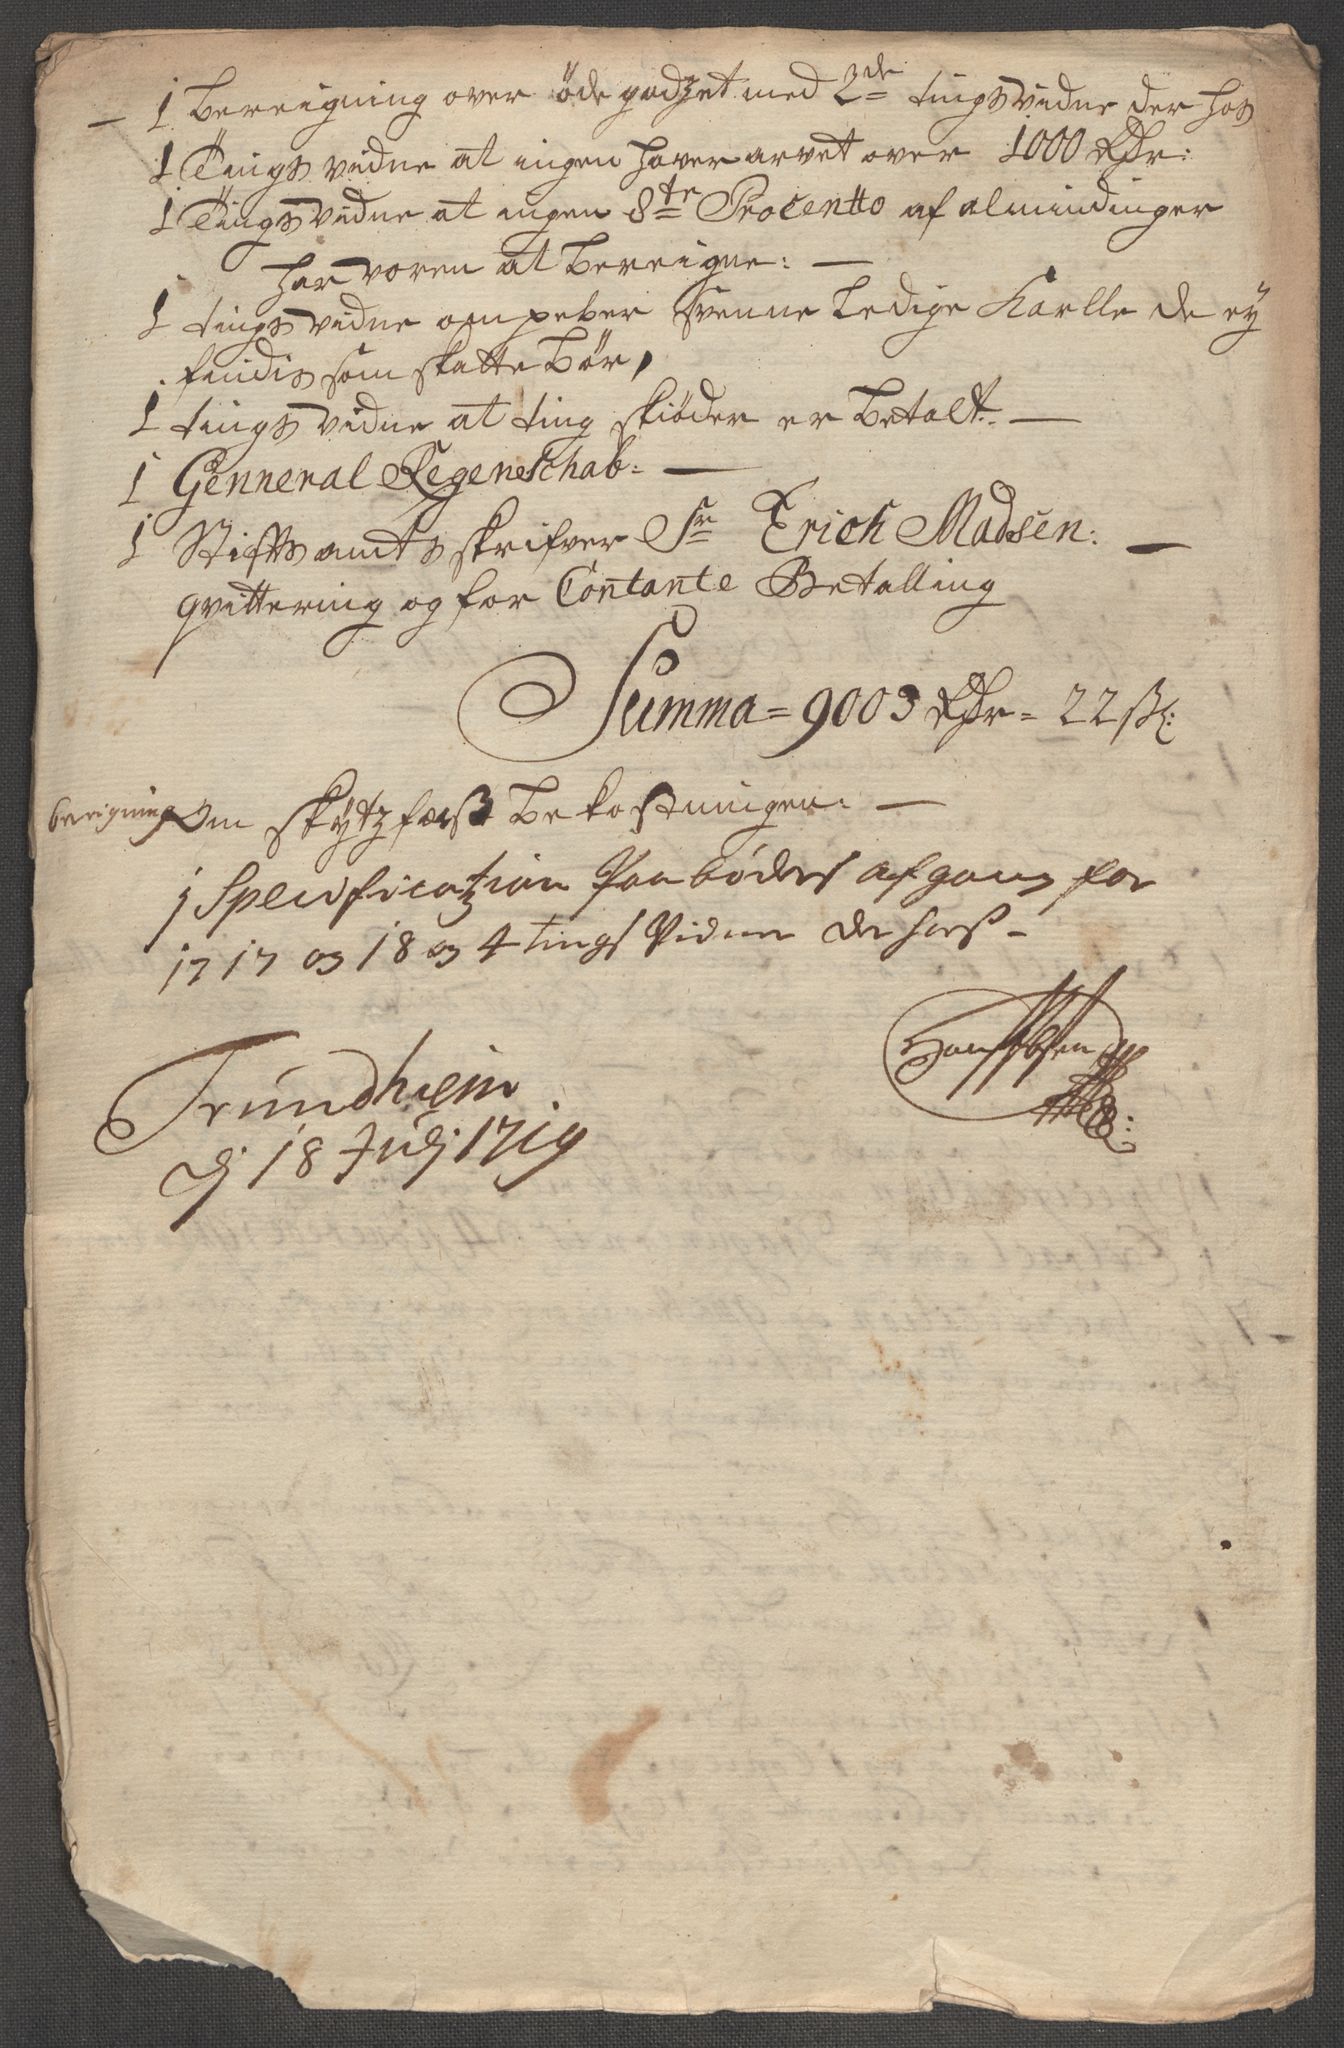 — 1 bereigning over öde godzet med 2de tings vidne der hos
1 Tings vidne at ingen hafver arvet over 1000 Rdr:
1 Tings vidne at ingen 8te Procentto af almindinger
har voren at bereigne: —
1 tings vidne om peber svenne ledige Karlle de ey
findis som skatte bör,
1 tings vidne at ting skiöder er betalt. —
1 Genneral Regenschab: —
1 Stifts amts skrifver Sr Erich Madsen: —
qvittering og for Contante Betalling
Summa = 9003 Rdr = 22 sk:
beregning om skytzfærst bekostningen: —
1 Specification Paa böders afgang for
1717 og 18 og 4 tings Vidner der hos —
Trundhiem
dj 18 Julj 1719